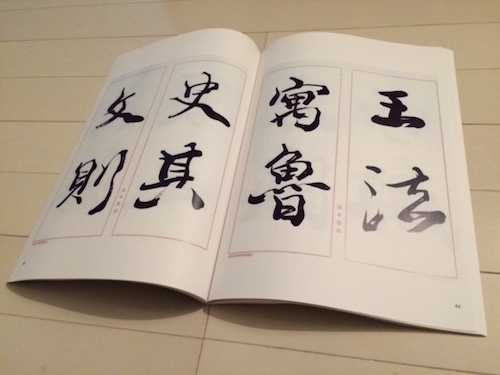 王法
寓魯
史其
文則
44